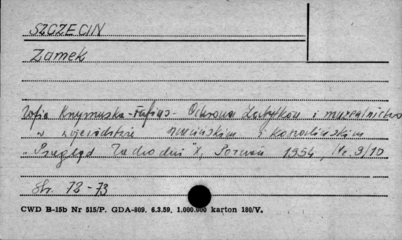 SZCZECIN
Zamek
Zofia Krzymuska-Fafius - Ochrona Zabytków i muzealnictwo
w województwie szczecińskim i koszalińskim
"Przegląd Zachodni", Poznań 1954, Nr. 9/10
Str. 72-73
CWD B-15b Nr 515/P. GDA-809. 6.3.59. 1.000.000 karton 180/V.